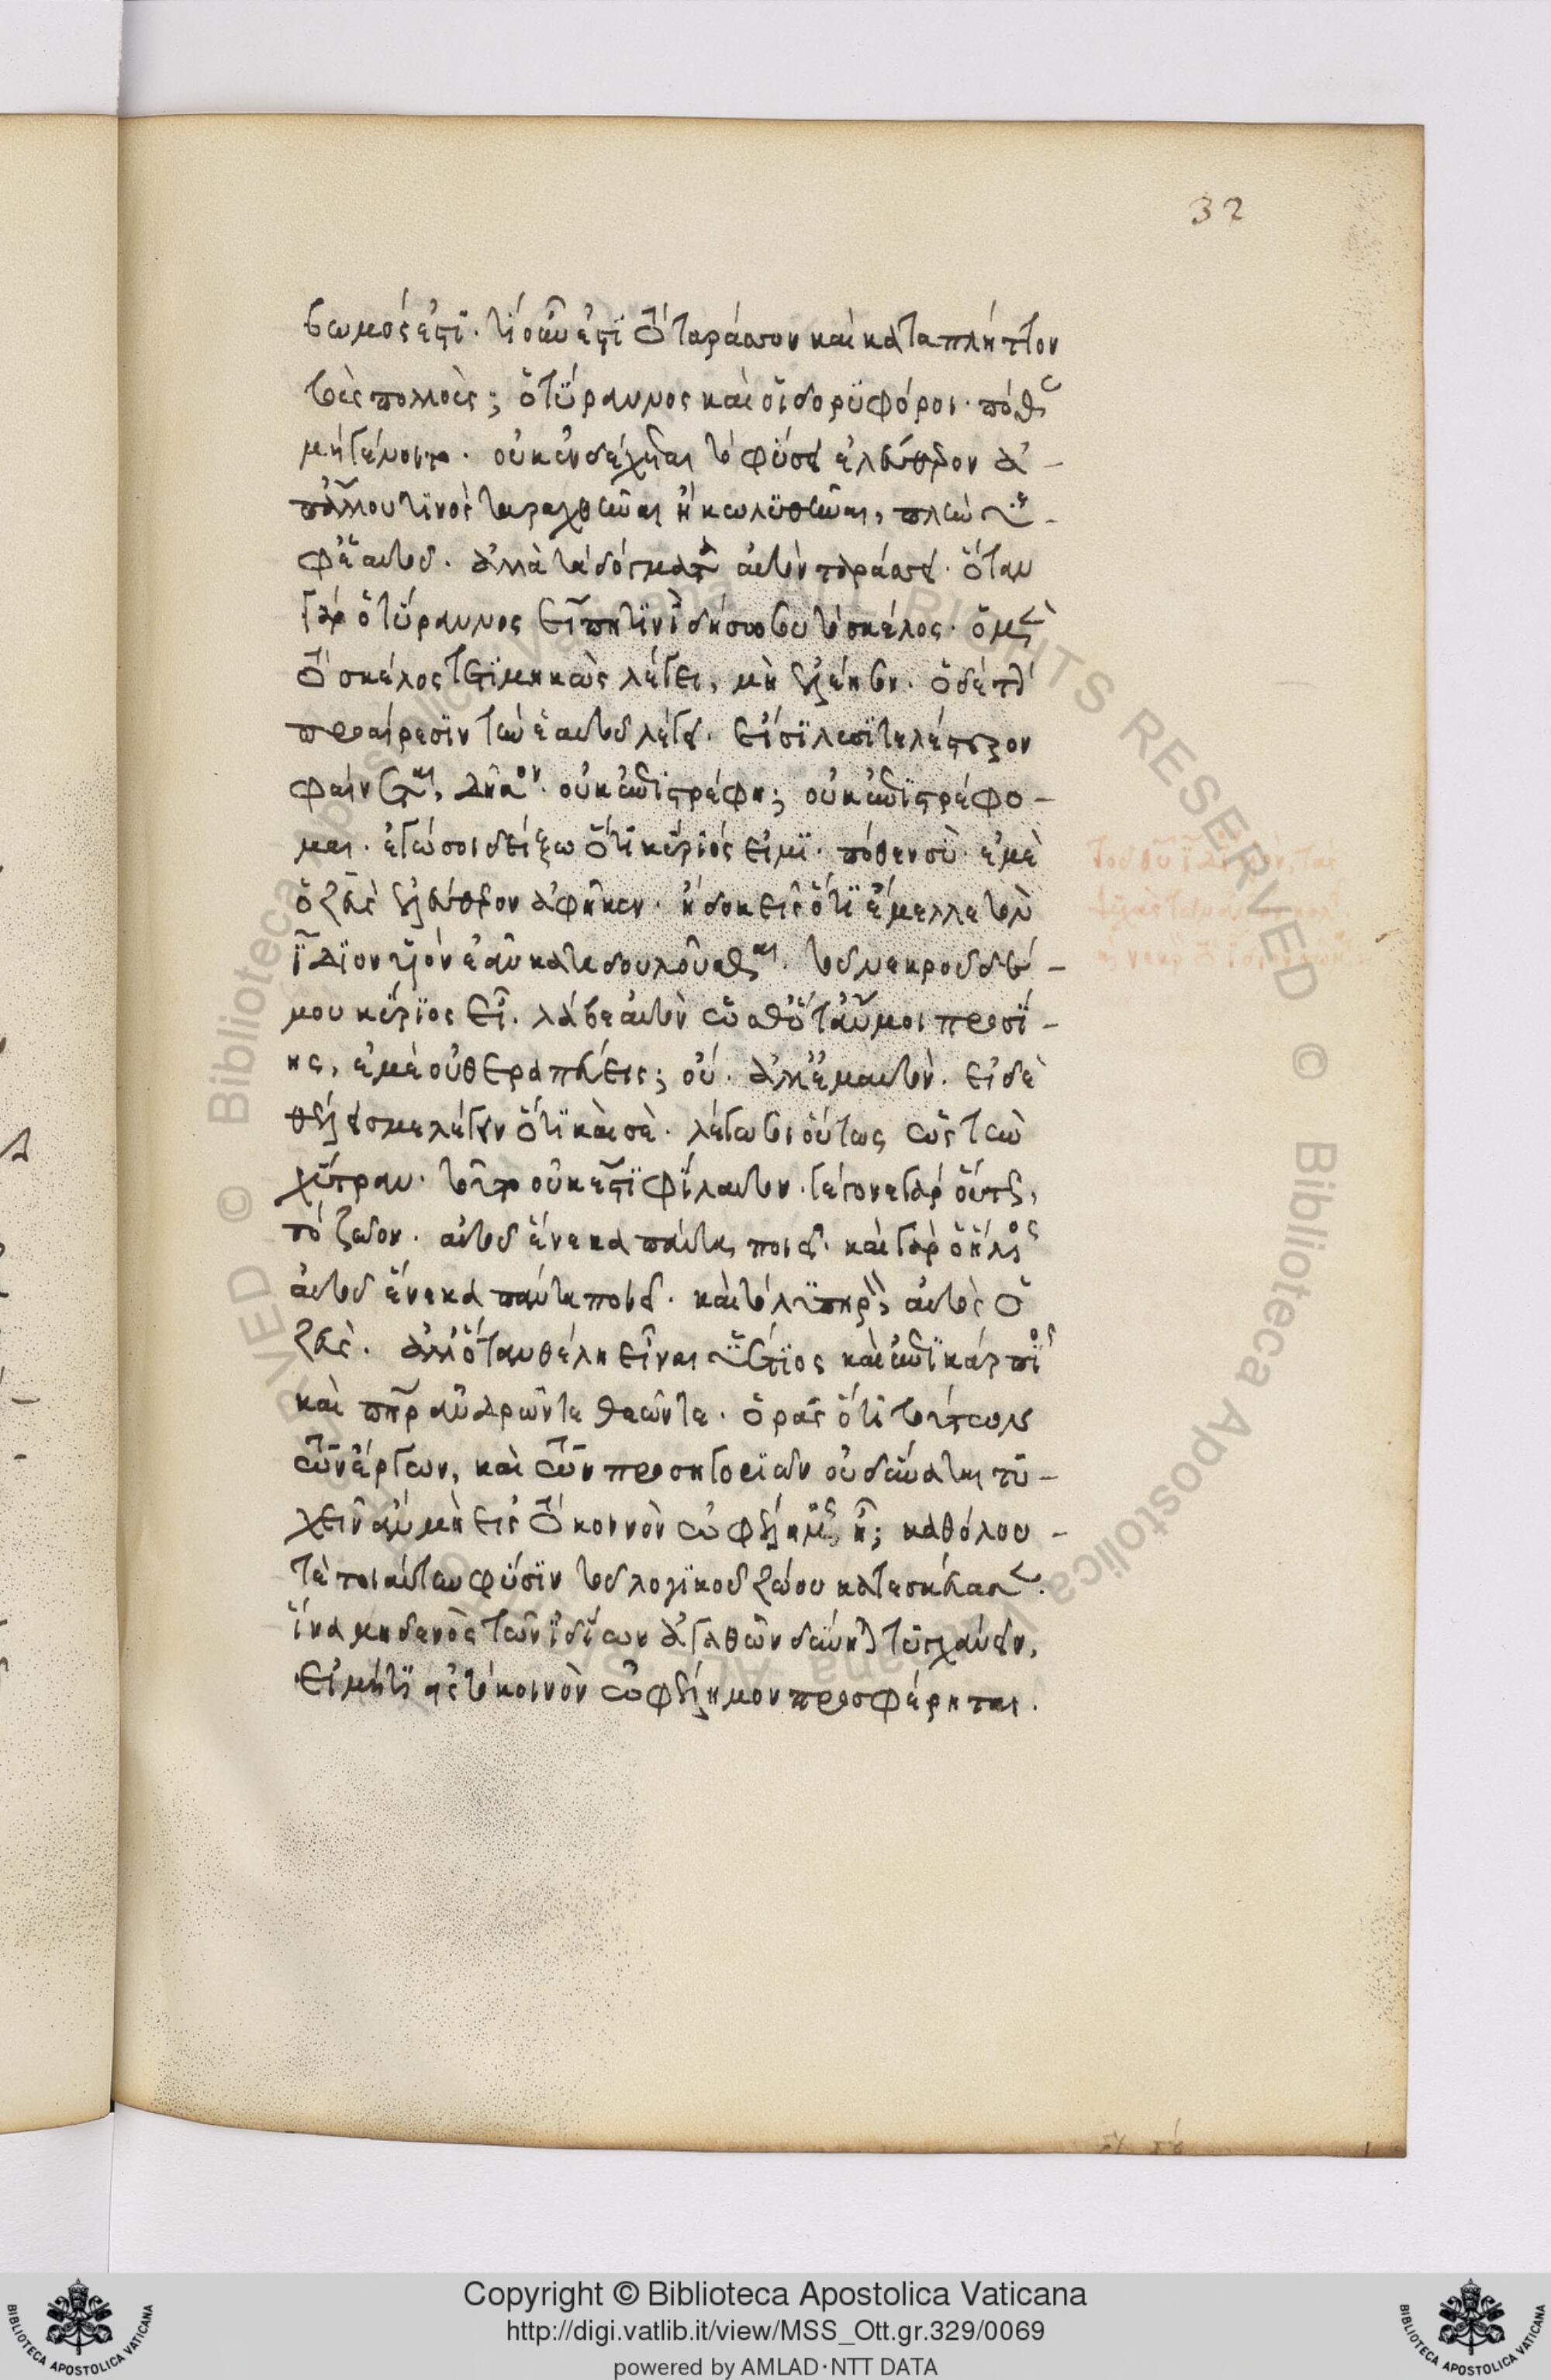 βωμός ἐστι· τί οὖν ἐστι τὸ ταράσσον καὶ καταπλήττον
τοὺς πολλούς; ὁ τύραννος καὶ οἱ δορυφόροι· πόθεν
μὴ γένοιτο. οὐκ ἐνδέχεται τὸ φύσει ἐλεύθερον ὑ-
π' ἄλλου τινὸς ταραχθῆναι ἢ κωλυθῆναι, πλὴν ὑ-
φ' ἑαυτοῦ. ἀλλὰ τὰ δόγματα αὐτὸν ταράσσει. ὅταν
γὰρ ὁ τύραννος εἴπῃ τινὶ δήσω σου τὸ σκέλος. ὁ μὲν
τὸ σκέλος τετιμηκὼς λέγει, μὴ ἐλέησον. ὁ δὲ τὴν
προαίρεσιν τὴν ἑαυτοῦ λέγει. εἴ σοι λυσιτελέστερον
φαίνεται, δῆσον. οὐκ ἐπιστρέφῃ; οὐκ ἐπιστρέφο-
μαι. ἐγώ σοι δείξω ὅτι κύριός εἰμι. πόθεν σὺ ἐμὲ
ὁ ζεὺς ἐλεύθερον ἀφῆκεν. ἢ δοκεῖς ὅτι ἔμελλε τὸν
ἴδιον υἱὸν ἐᾶν καταδουλοῦσθαι. τοῦ νεκροῦ δέ
μου κύριος εἶ. λάβε αὐτὸν ὥσθ' ὅταν μοι προσί-
ῃς, ἐμὲ οὐ θεραπεύεις; οὔ. ἀλλ' ἐμαυτόν. εἰ δὲ
θέλεις με λέγειν ὅτι καὶ σὲ. λέγω σοι οὕτως ὡς τὴν
χύτραν. τοῦτο οὐκ ἔστι φίλαυτον. γέγονε γὰρ οὕτως,
τὸ ζῶον. αὐτοῦ ἕνεκα πάντα ποιεῖ. καὶ γὰρ ὁ ἥλιος
αὐτοῦ ἕνεκα πάντα ποιεῖ. καὶ τὸ λοιπὸν αὐτὸς ὁ
ζεὺς. ἀλλ' ὅταν θέλῃ εἶναι ὑέτιος καὶ ἐπικάρπιος
καὶ πατὴρ ἀνδρῶν τε θεῶν τε. ὁρᾷς ὅτι τούτων
τῶν ἔργων, καὶ τῶν προσηγοριῶν οὐ δύναται τυ-
χεῖν ἂν μὴ εἰς τὸ κοινὸν ὠφέλιμος ᾖ; καθόλου
τε τοιαύτην φύσιν τοῦ λογικοῦ ζώου κατεσκεύασεν.
ἵνα μηδενὸς τῶν ἰδίων ἀγαθῶν δύνηται τυγχάνειν,
εἰ μή τι εἰς τὸ κοινὸν ὠφέλιμον προσφέρηται.
32
Copyright © Biblioteca Apostolica Vaticana
http://digi.vatlib.it/view/MSS_Ott.gr.329/0069
powered by AMLAD·NTT DATA